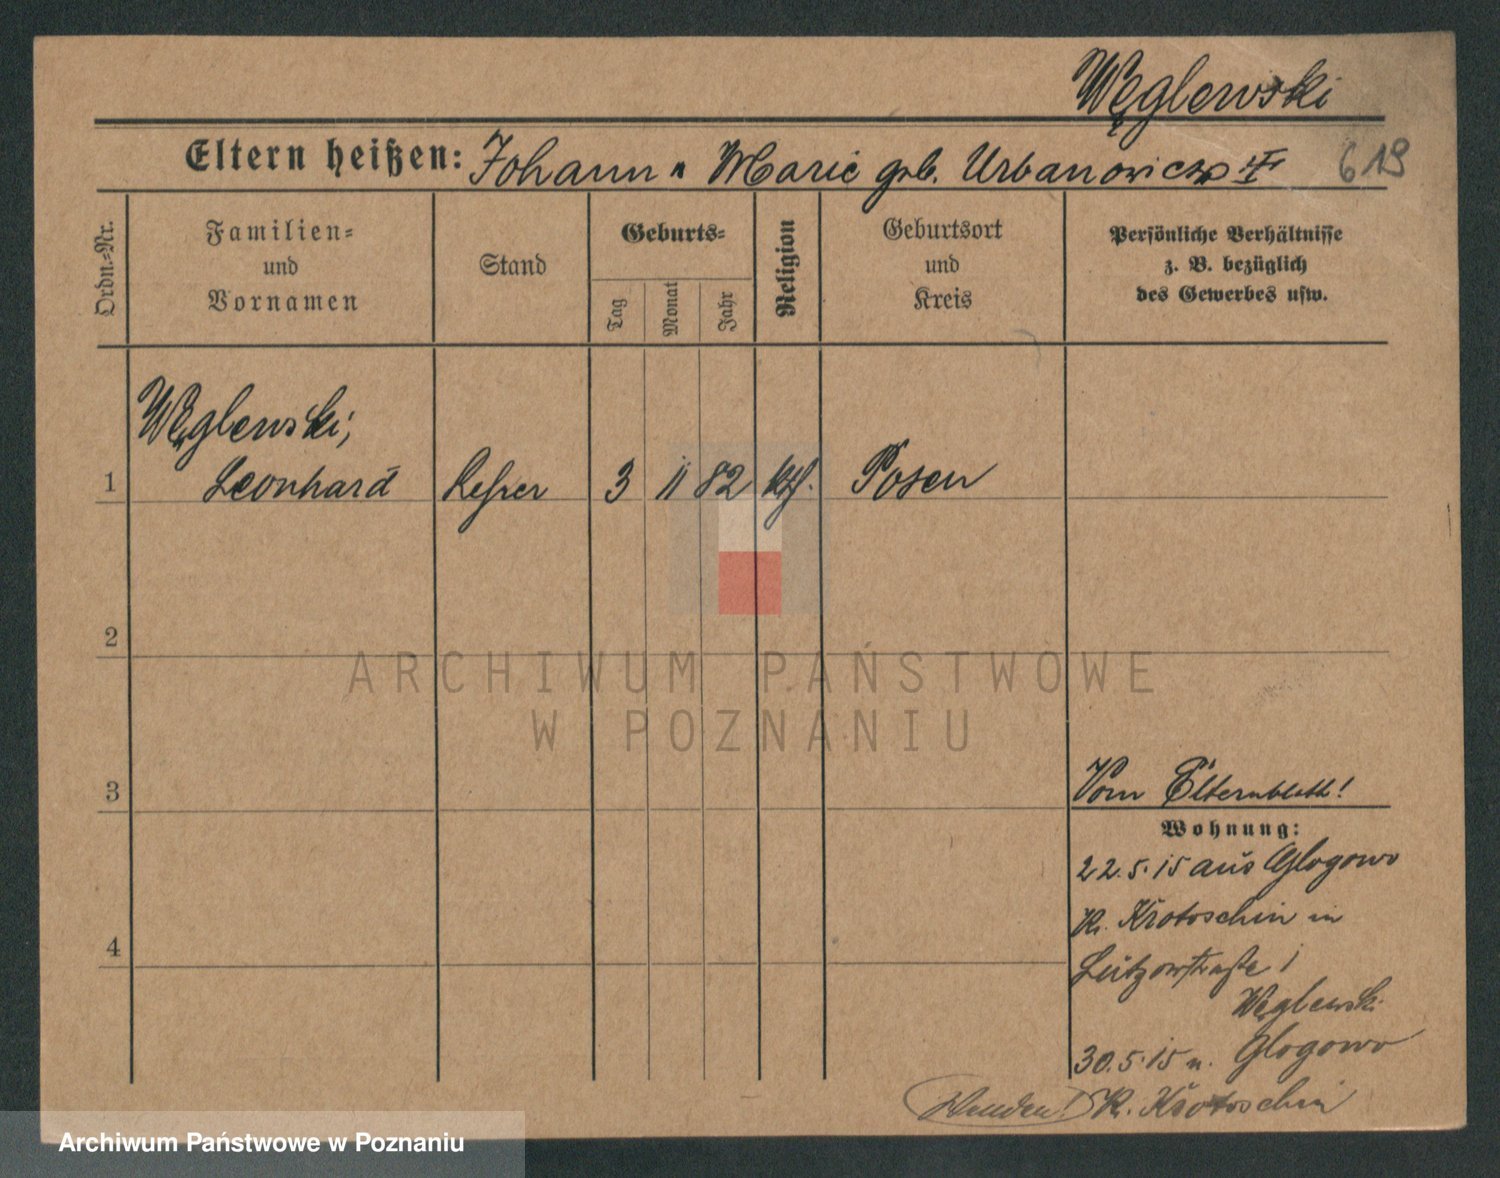 Węglewski
Eltern heißen: Johann u Marie geb. Urbanowicz
619
Ordn.=Nr.
Familien=
und
Vornamen
Stand
Geburts=
Tag
Monat
Jahr
Religion
Geburtsort
und
Kreis
Persönliche Verhältnisse
z. B. bezüglich
des Gewerbes usw.
1
Węglewski,
Leonhard
Lehrer
3
11
82
kth.
Posen
2
ARCHIWUM PAŃSTWOWE
W POZNANIU
3
Vom Elternblatt!
Wohnung:
22.5.15 aus Glogowo
Kr. Krotoschin in
4
Lützowstraße 1
Węglewski
30.5.15 n. Glogowo
Kr. Krotoschin
Wenden!
Archiwum Państwowe w Poznaniu